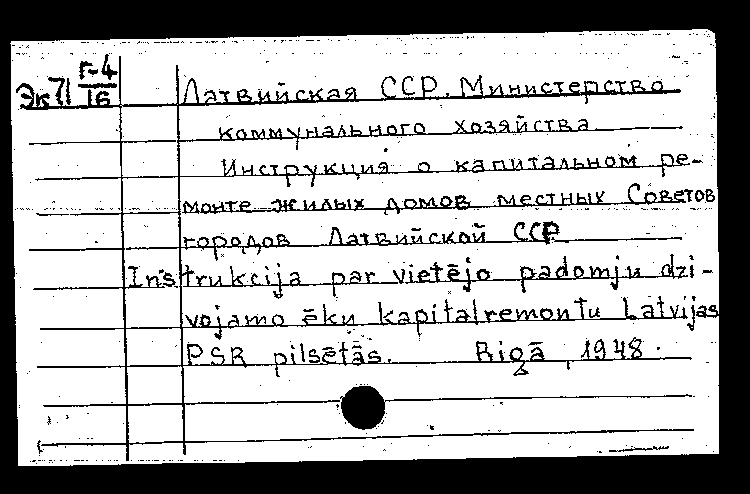 Эк71 Г-4
16
Латвийская ССР. Министерство
коммунального хозяйства
Инструкция о капитальном ре-
монте жилых домов местных Советов
городов Латвийской ССР
Instrukcija par vietējo padomju dzi-
vojamo ēku kapitalremontu Latvijas
PSR pilsētās. Rigā, 1948.